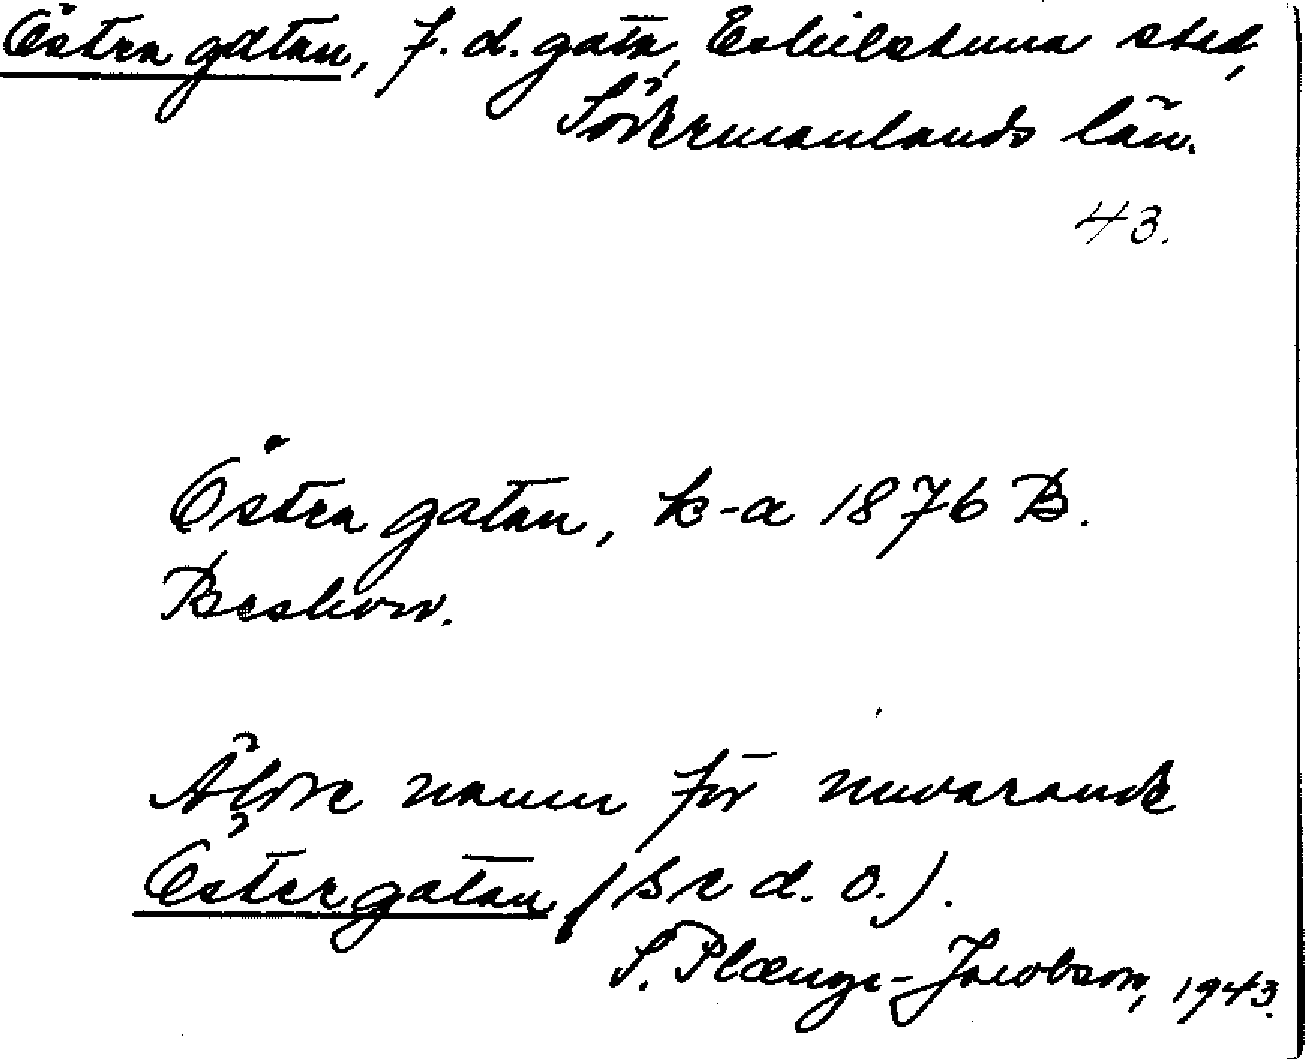 Östra gatan, f. d. gata, Eskilstuna stad,
Södermanlands län.
43.
Östra gatan, k-a 1876 B.
Beskow.
Äldre namn för nuvarande
Östergatan (se d. o.).
S. Plænge-Jacobson, 1943.